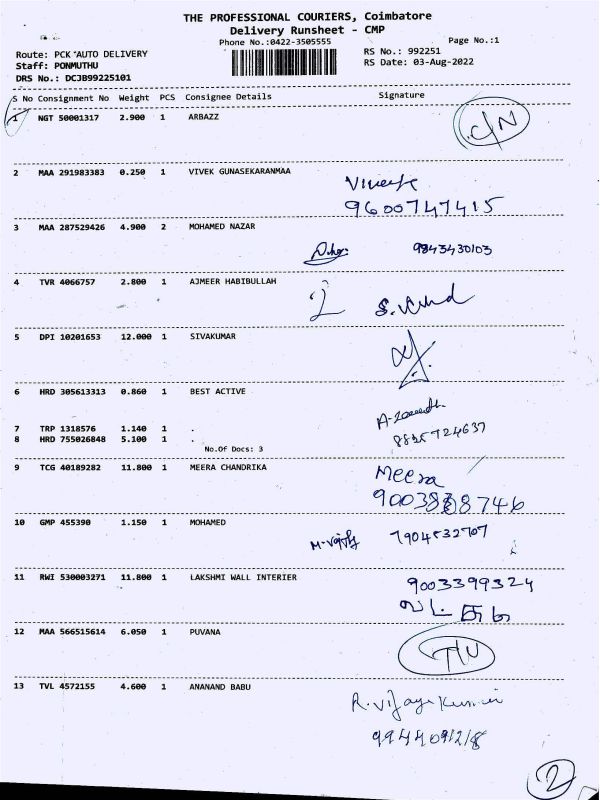 THE PROFESSIONAL COURIERS, Coimbatore
Delivery Runsheet - CMP
Phone No.:0422-3505555
Page No.:1
Route: PCK AUTO DELIVERY
RS No.: 992251
Staff: PONMUTHU
RS Date: 03-Aug-2022
DRS No.: DCJB99225101
S No Consignment No Weight PCS Consignee Details Signature
1 NGT 50001317 2.900 1 ARBAZZ
C/N
2 MAA 291983383 0.250 1 VIVEK GUNASEKARANMAA
9600747415
3 MAA 287529426 4.900 2 MOHAMED NAZAR
9843430103
4 TVR 4066757 2.800 1 AJMEER HABIBULLAH
5 DPI 10201653 12.000 1 SIVAKUMAR
6 HRD 305613313 0.860 1 BEST ACTIVE
7 TRP 1318576 1.140 1 .
8835724637
8 HRD 755026848 5.100 1 .
No.Of Docs: 3
9 TCG 40189282 11.800 1 MEERA CHANDRIKA
Meera
10 GMP 455390 1.150 1 MOHAMED
7904532707
11 RWI 530003271 11.800 1 LAKSHMI WALL INTERIER
9003399324
12 MAA 566515614 6.050 1 PUVANA
13 TVL 4572155 4.600 1 ANANAND BABU
R.vijayakumar
9944091218
2